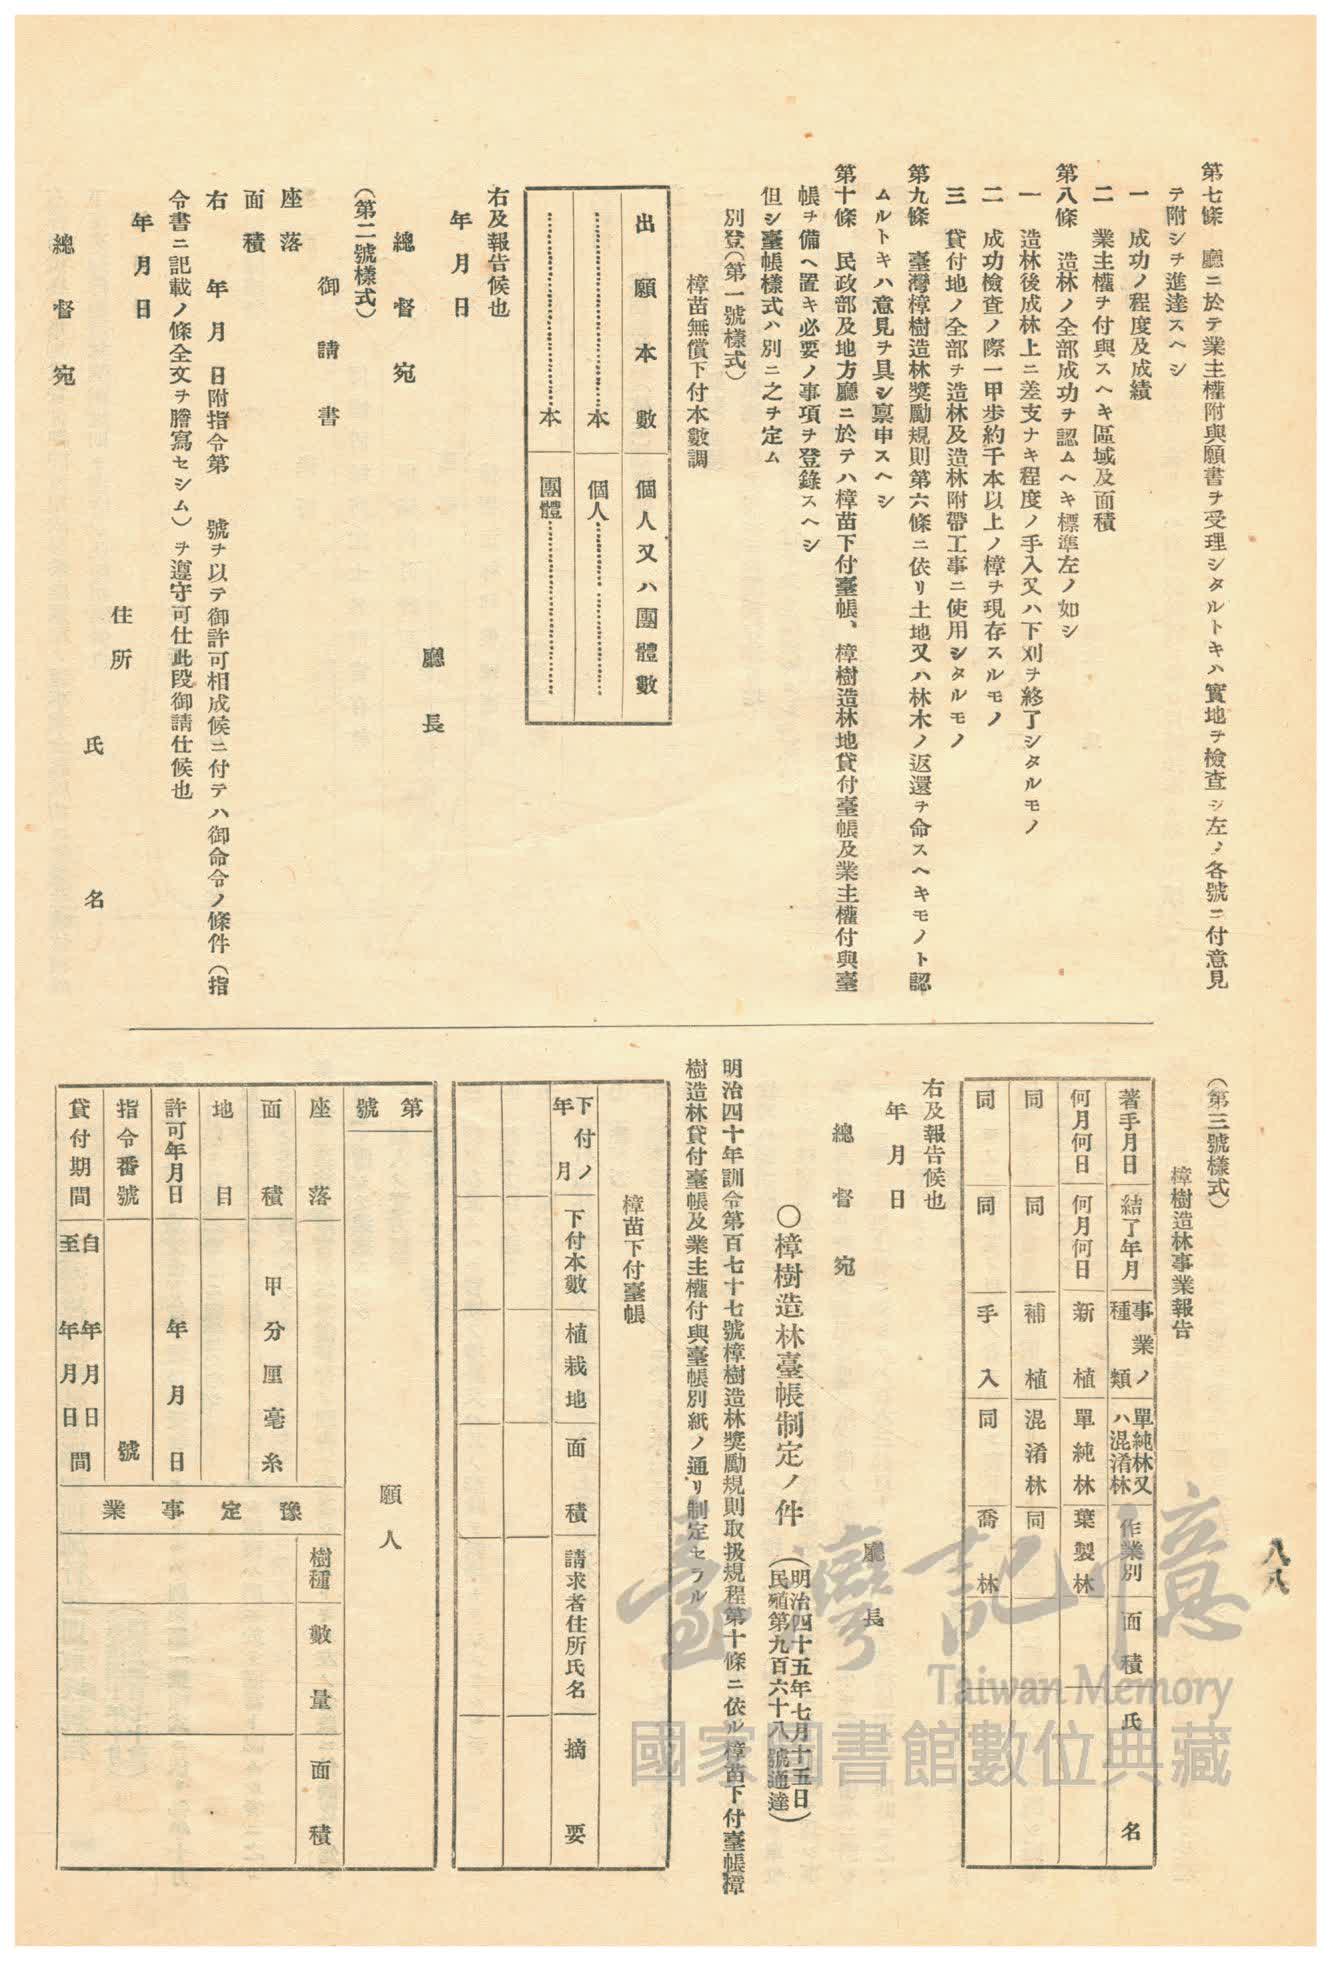 第七條　廳ニ於テ業主權附與願書ヲ受理シタルトキハ實地ヲ檢查シ左ノ各號ニ付意見
テ附シチ進達スヘシ
一　成功ノ程度及成績
二　業主權ヲ付與スヘキ區域及面積
第八條　造林ノ全部成功ヲ認ムヘキ標準左ノ如シ
一　造林後成林上ニ差支ナキ程度ノ手入又ハ下刈ヲ終了シタルモノ
二　成功檢查ノ際一甲步約千本以上ノ樟ヲ現存スルモノ
三　貸付地ノ全部ヲ造林及造林附帶工事ニ使用シタルモノ
第九條　臺灣樟樹造林獎勵規則第六條ニ依リ土地又ハ林木ノ返還ヲ命スヘキモノト認
ムルトキハ意見ヲ具シ禀申スヘシ
第十條　民政部及地方廳ニ於テハ樟苗下付臺帳、樟樹造林地貸付臺帳及業主權付與臺
帳ヲ備ヘ置キ必要ノ事項ヲ登錄スヘシ
但シ臺帳樣式ハ別ニ之ヲ定ム
別登(第一號樣式)
樟苗無償下付本數調
出願本數　個人又ハ團體數
本　個人
本　團體
右及報告候也
年月日
廳長
總督宛
(第二號樣式)
御請書
座落
面積
右　年　月　日附指令第　號ヲ以テ御許可相成候ニ付テハ御命令ノ條件(指
令書ニ記載ノ條全文ヲ謄寫セシム)ヲ遵守可仕此段御請仕候也
年月日
住所
氏名
總督宛
(第三號樣式)
樟樹造林事業報告
著手月日　結了年月　事業ノ種類　單純林又ハ混淆林　作業別　面積　氏名
何月何日　何月何日　新植　單純林　葉製林
同　同　補植　混淆林　同
同　同　手入　同　喬林
右及報告候也
年月日
廳長
總督宛
○樟樹造林臺帳制定ノ件　(明治四十五年七月十五日
民殖第九百六十八號通達)
明治四十年訓令第百七十七號樟樹造林獎勵規則取扱規程第十條ニ依ル樟苗下付臺帳樟
樹造林貸付臺帳及業主權付與臺帳別紙ノ通リ制定セラル
樟苗下付臺帳
下付ノ年月　下付本數　植栽地　面積　請求者住所氏名　摘要
第號　願人
座落
面積　甲分厘毫糸
地目
許可年月日　年月日
指令番號　號
貸付期間　自年月日至年月日間
豫定事業
樹種　數量　面積
八八
臺灣記憶
Taiwan Memory
國家圖書館數位典藏